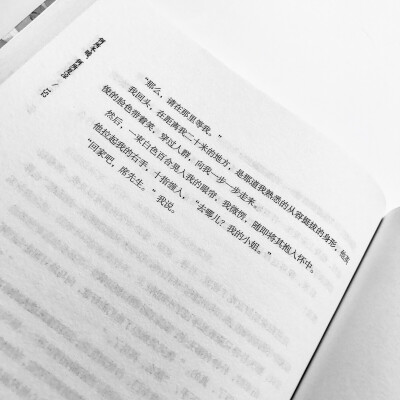 “那么，请在那里等我。”
我回头，在距离我二十米的地方，是那道我熟悉的从容挺拔的身形，他英
俊的脸色带着笑，穿过人群，向我一步一步走来。
然后，一束白色百合晃入我的眼帘，我微愣，随即将其抱入怀中。
他拉起我的右手，十指滑入，“去哪儿？我的小姐。”
“回家吧，席先生。”我说。